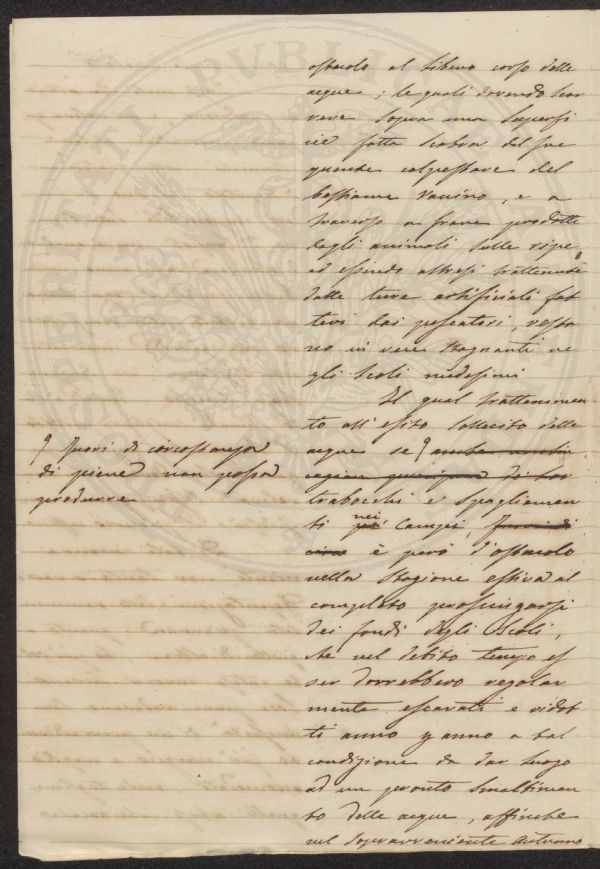 ostacolo al libero corso delle
acque; le quali dovendo scor
rere sopra una superfi
cie fatta scabra dal fre
quente calpestare del
bestiame vaccino, e a
traverso a frane prodotte
dagli animali sulle ripe,
ed essendo altresì trattenute
dalle ture artificiali fat
tevi dai pescatori, resta
no in vece stagnanti ne
gli scoli medesimi
Il qual trattenimen
to all'esito sollecito delle
acque se
¶ fuori di circostanza
di piene non possa
produrre
di
trabocchi e spagliamen
ti nei campi,
è però d'ostacolo
nella stagione estiva al
completo prosciugarsi
dei fondi degli scoli,
che nel debito tempo es
ser dovrebbero regolar
mente escavati e ridot
ti anno p anno a tal
condizione da dar luogo
ad un pronto smaltimen
to delle acque, affinche
nel sopravveniente autunno
PUBLI
SPERITATI